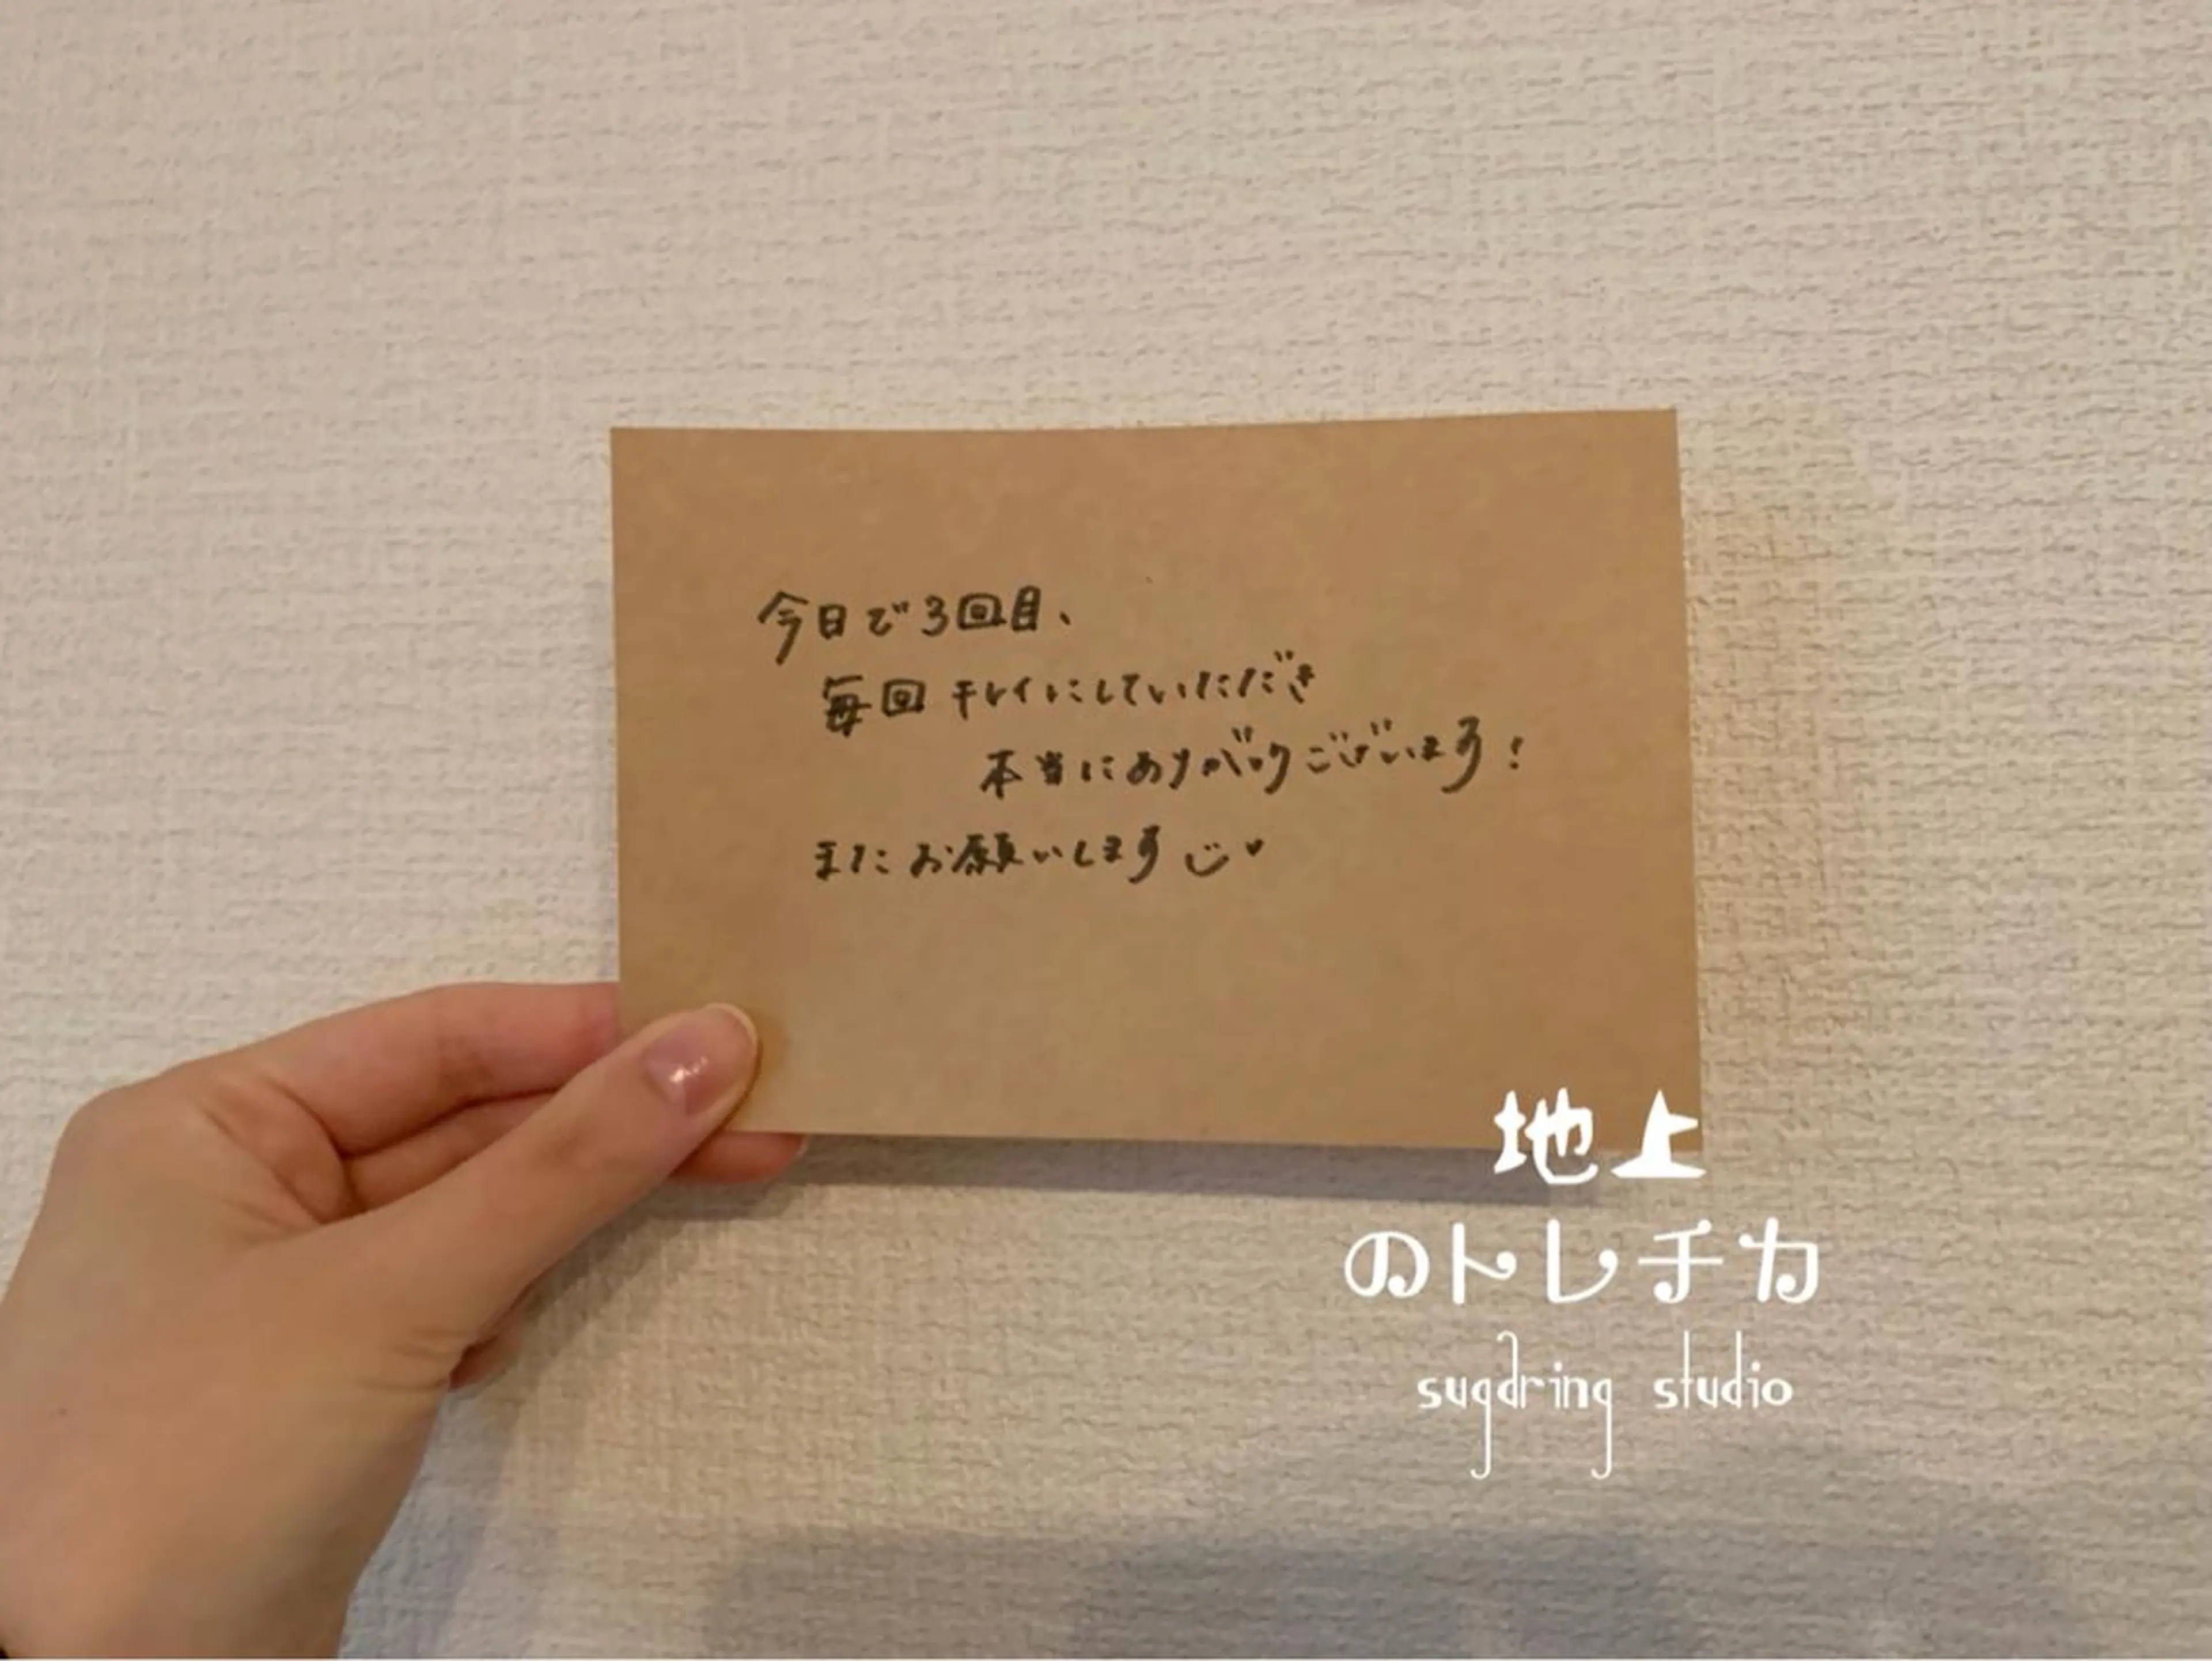 今日で3回目、
毎回キレイにしていただき
本当にありがとうございます!
またお願いします
地上
のトレチカ
sugdring studio